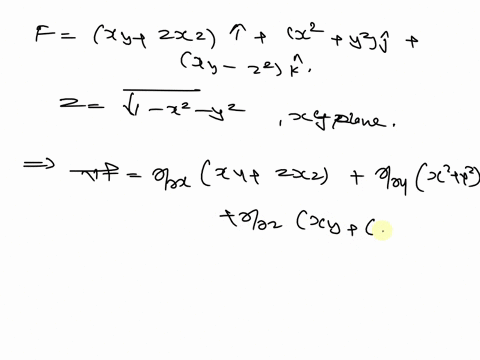 F = (xy + 2xz) î + (x² + y²) ĵ +
(xy - z²) k̂.
z = √1 - x² - y² , xy plane.
⇒ = ∂/∂x (xy + 2xz) + ∂/∂y (x² + y²)
+ ∂/∂z (xy + (